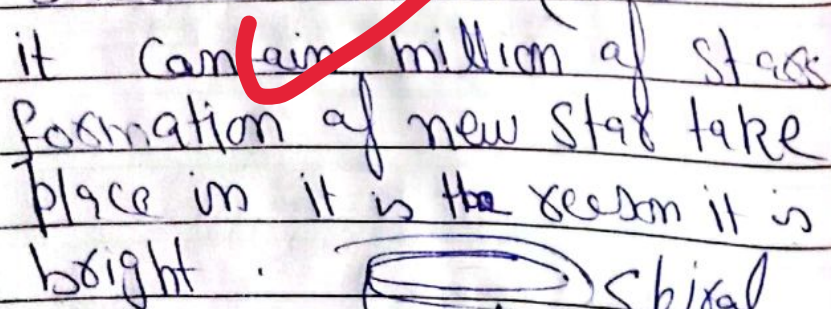 it contain million of stars
formation of new star take
place in it is the reason it is
bright .
Spiral